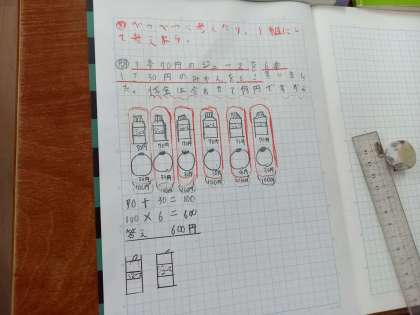 べつべつに考えたり、1組にし
て考えよう。
問 1本70円のジュースを6本
1こ30円のみかんを6こ買いまし
た。代金は合わせて何円ですか。
70円 70円 70円 70円 70円 70円
30円 30円 30円 30円 30円 30円
100円 100円 100円 100円 100円 100円
70 + 30 = 100
100 × 6 = 600
答え 600円